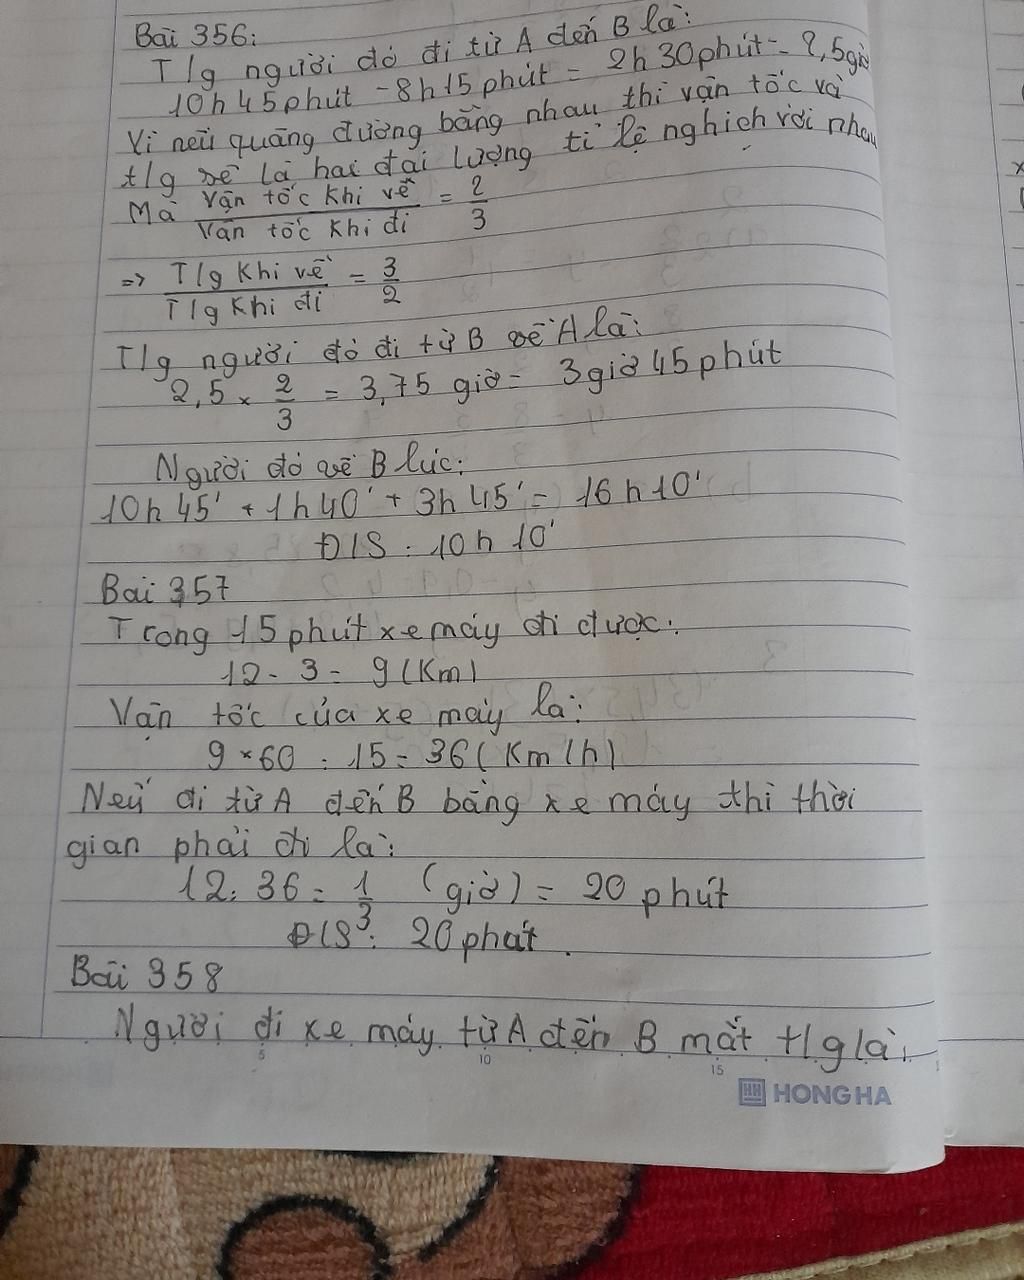 Bài 356:
T/g người đó đi từ A đến B là:
10h45phút - 8h15phút = 2h30phút = 2,5giờ
Vì nếu quãng đường bằng nhau thì vận tốc và
t/g sẽ là hai đại lượng tỉ lệ nghịch với nhau
Mà Vận tốc khi về / Vận tốc khi đi = 2/3
=> T/g khi về / T/g khi đi = 3/2
T/g người đó đi từ B về A là:
2,5 x 2/3 = 3,75 giờ = 3giờ 45phút
Người đó về B lúc:
10h45' + 1h40' + 3h45' = 16h10'
Đ/S: 10h10'
Bài 357
Trong 15phút xe máy đi được:
12 - 3 = 9 (Km)
Vận tốc của xe máy là:
9 x 60 : 15 = 36 (Km/h)
Nếu đi từ A đến B bằng xe máy thì thời
gian phải đi là:
12 : 36 = 1/3 (giờ) = 20 phút
Đ/S: 20 phát.
Bài 358
Người đi xe máy từ A đến B mất t/g là:
5 10 15
HH HONG HA